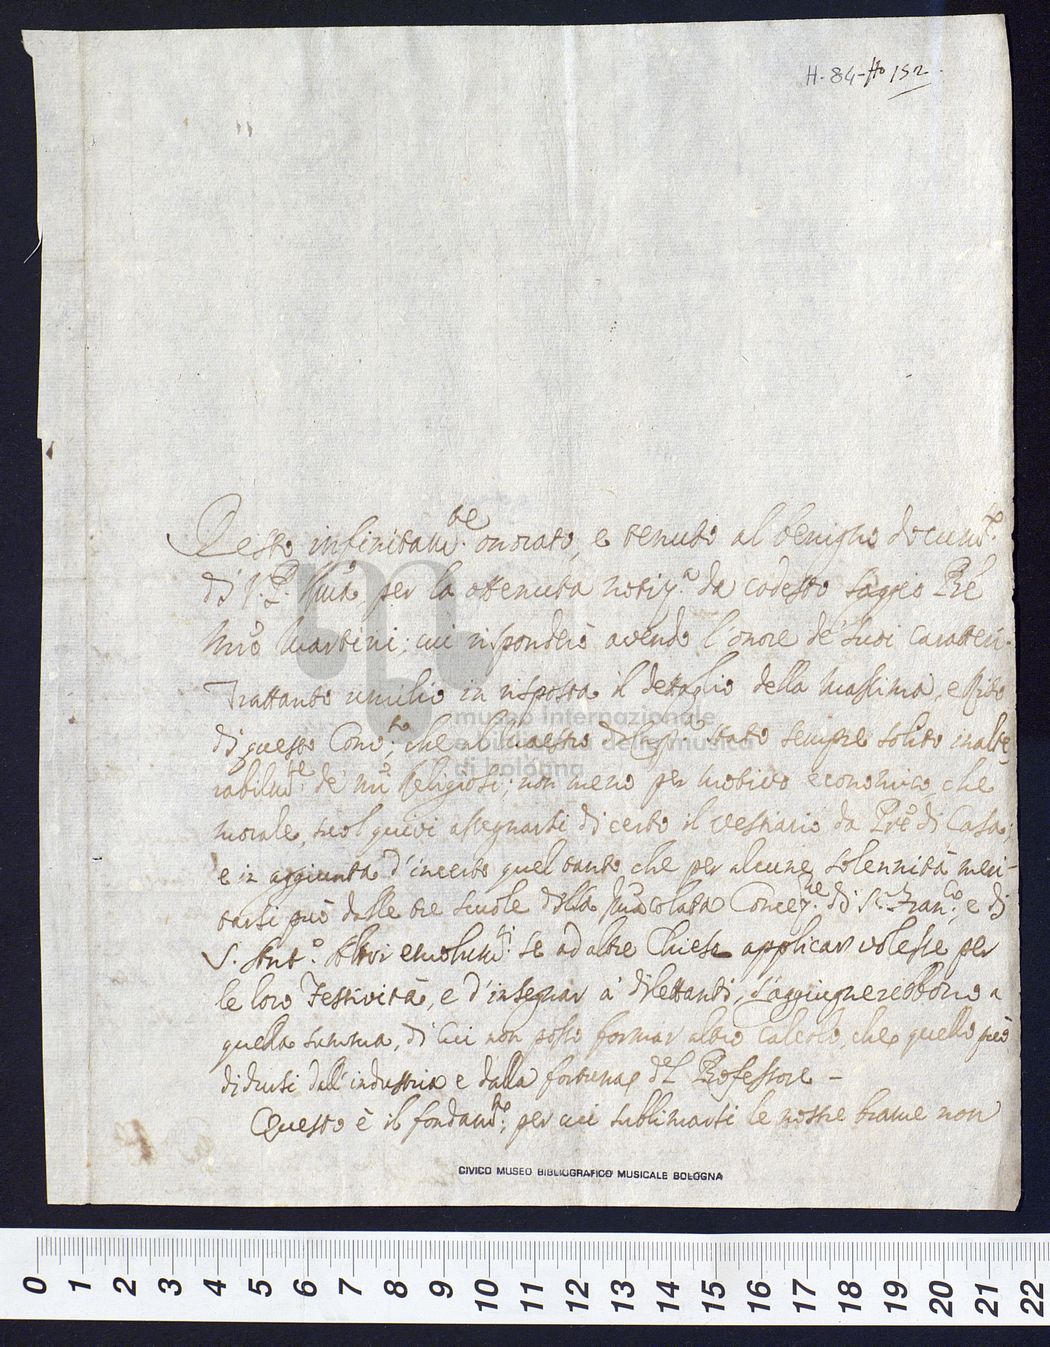 H-84-tto 152.
Resto infinitam.te onorato, e tenuto al benigno docum.to
di V. P. M.a per la ottenuta notiz.a da codesto saggio Prē
Mrō Martini; cui risponderò avendo l'onore de' suoi caratteri.
Trattanto umilio in risposta il dettaglio della Massima, e
di questo Conv.to, che al Maestro di Cap.a stato sempre solito inalte
rabilm.te de' nrī Religiosi; non meno per motivo economico, che
morale, suol quivi assegnarsi di certo il vestiario da Prē di Casa;
e in aggiunta d'incerto quel tanto che per alcune solennità meri-
tarsi può dalle tre scuole della Im̄acolata Concez.ne di S. Fran.co e di
S. Ant.o Altri emolum.ti se ad altre Chiese applicar volesse per
le loro Festività, e d'insegnar a' dilettanti, s'aggiugnerebbono a
quella summa, di cui non posso formar altro calcolo, che quello può
didursi dall'industria e dalla fortuna del Professore -
Questo è il fondam.to, per cui sublimarsi le nostre brame non
museo internazionale
e biblioteca della musica
di bologna
CIVICO MUSEO BIBLIOGRAFICO MUSICALE BOLOGNA
0 1 2 3 4 5 6 7 8 9 10 11 12 13 14 15 16 17 18 19 20 21 22